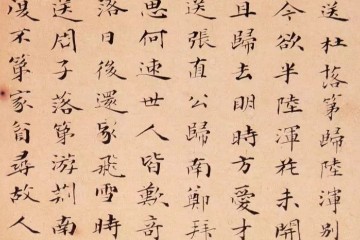 送杜落第歸陸渾別
今欲半陸渾花未開
且歸去明時方愛才
送張直公歸南鄭拜
思何速世人皆歎奇
落日後還家飛雪時
送周子落第游荊南
復不第家貧尋故人